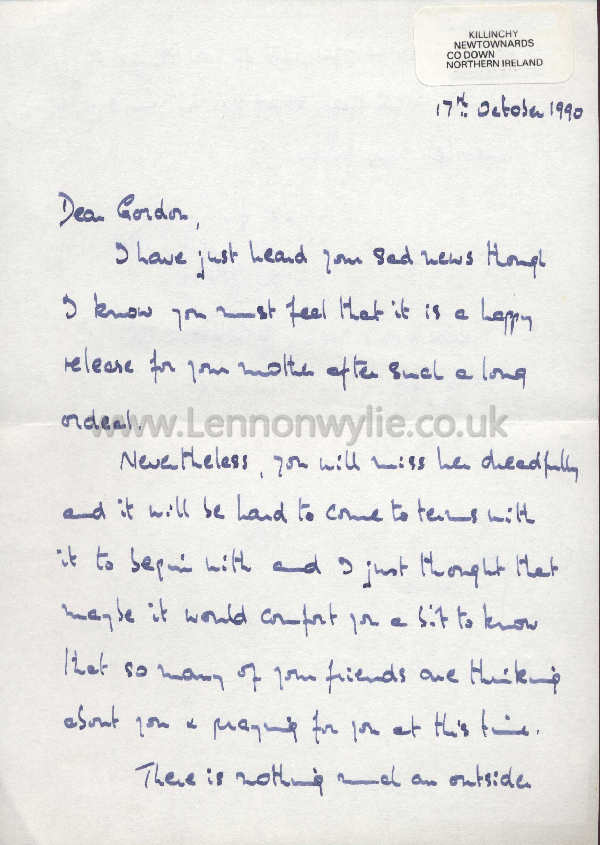 KILLINCHY
NEWTOWNARDS
CO DOWN
NORTHERN IRELAND
17th October 1990
Dear Gordon,
I have just heard your sad news though
I know you must feel that it is a happy
release for your mother after such a long
ordeal.
www.Lennonwylie.co.uk
Nevertheless, you will miss her dreadfully
and it will be hard to come to terms with
it to begin with and I just thought that
maybe it would comfort you a bit to know
that so many of your friends are thinking
about you & praying for you at this time.
There is nothing much an outsider